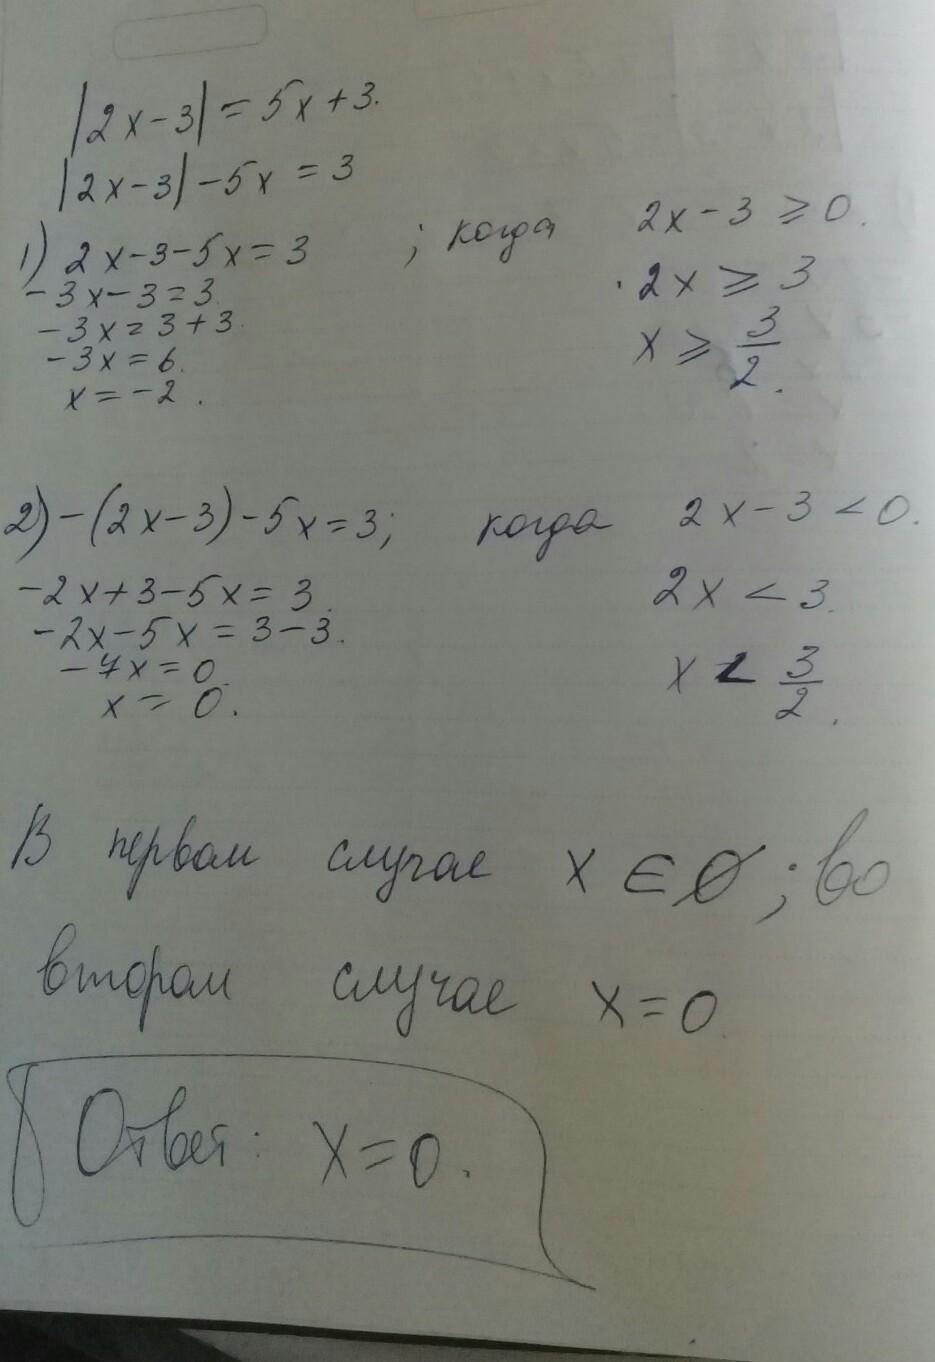 |2x-3| = 5x+3.
|2x-3| -5x = 3
1) 2x-3-5x=3 ; когда 2x-3 ⩾ 0.
-3x-3=3. 2x ⩾ 3
-3x=3+3. x ⩾ 3/2.
-3x=6.
x=-2.
2) -(2x-3)-5x=3; когда 2x-3<0.
-2x+3-5x=3. 2x < 3.
-2x-5x=3-3. x < 3/2.
-7x=0.
x=0.
В первом случае x ∈ ∅; во
втором случае x=0.
Ответ: x=0.